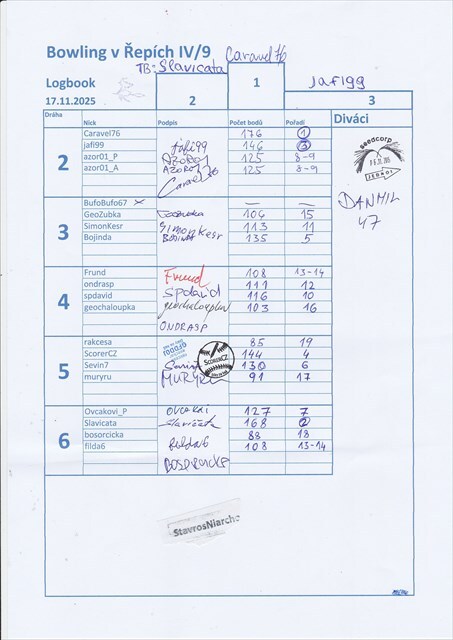 Bowling v Řepích IV/9 Caravel76
TB: Slavicata
Logbook 1 jafi99
17.11.2025 2 3
Dráha Nick Podpis Počet bodů Pořadí Diváci
2
Caravel76 176 1
jafi99 jafi99 146 3
azor01_P AZOR01 125 8-9
azor01_A AZOR01 125 8-9
Caravel76
seedcorp
DANMIL
47
3
BufoBufo67 x — —
GeoZubka GeoZubka 104 15
SimonKesr SimonKesr 113 11
Bojinda BOJINDA 135 5
4
Frund Frund 108 13-14
ondrasp 111 12
spdavid spdavid 116 10
geochaloupka geochaloupka 103 16
ONDRASP
5
rakcesa 85 19
ScorerCZ SCORERCZ 144 4
Sevin7 130 6
muryru MURYRU 91 17
6
Ovcakovi_P OVCAKOVI 127 7
Slavicata Slavicata 168 2
bosorcicka 88 18
filda6 filda6 108 13-14
BOSORCICKA
StavrosNiarcho